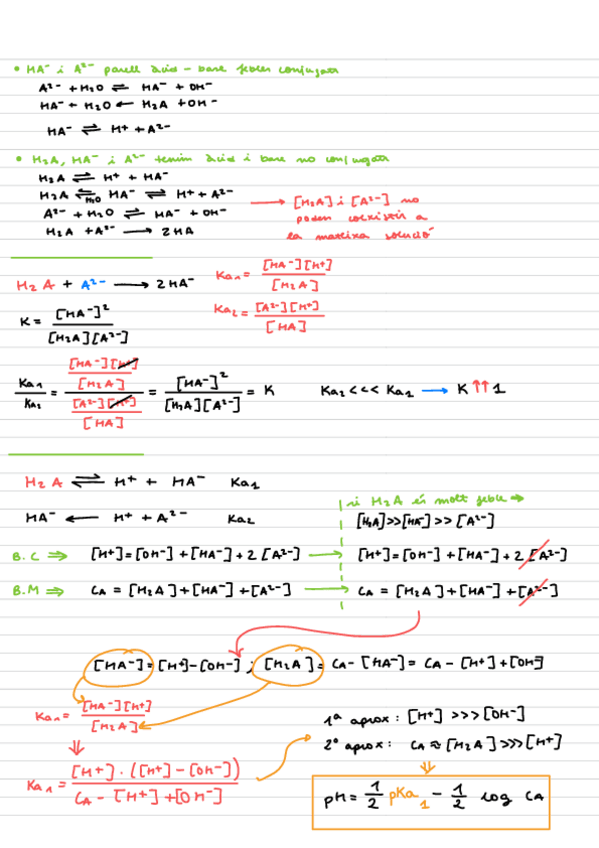 • HA⁻ i A²⁻ parell àcid-base febles conjugats
A²⁻ + H₂O ⇌ HA⁻ + OH⁻
HA⁻ + H₂O ← H₂A + OH⁻
HA⁻ ⇌ H⁺ + A²⁻
• H₂A, HA⁻ i A²⁻ tenim àcid i base no conjugats
H₂A ⇌ H⁺ + HA⁻
H₂A ⇌ H₂O HA⁻ ⇌ H⁺ + A²⁻
A²⁻ + H₂O ⇌ HA⁻ + OH⁻
H₂A + A²⁻ → 2HA
→ [H₂A] i [A²⁻] no
poden coexistir a
la mateixa solució
H₂A + A²⁻ → 2HA⁻
K = [HA⁻]² / [H₂A][A²⁻]
Ka₁ = [HA⁻][H⁺] / [H₂A]
Ka₂ = [A²⁻][H⁺] / [HA]
Ka₁ / Ka₂ = ([HA⁻][H⁺] / [H₂A]) / ([A²⁻][H⁺] / [HA]) = [HA⁻]² / [H₂A][A²⁻] = K Ka₂ <<< Ka₁ → K ↑↑ 1
H₂A ⇌ H⁺ + HA⁻ Ka₁
HA⁻ ← H⁺ + A²⁻ Ka₂
si H₂A és molt feble ⇒
[H₂A] >> [HA⁻] >> [A²⁻]
B.C ⇒ [H⁺] = [OH⁻] + [HA⁻] + 2[A²⁻] → [H⁺] = [OH⁻] + [HA⁻] + 2[A²⁻]
B.M ⇒ CA = [H₂A] + [HA⁻] + [A²⁻] → CA = [H₂A] + [HA⁻] + [A²⁻]
[HA⁻] = [H⁺] - [OH⁻] ; [H₂A] = CA - [HA⁻] = CA - [H⁺] + [OH⁻]
Ka₁ = [HA⁻][H⁺] / [H₂A]
⇓
Ka₁ = [H⁺] · ([H⁺] - [OH⁻]) / CA - [H⁺] + [OH⁻]
1ª aprox: [H⁺] >>> [OH⁻]
2ª aprox: CA ≈ [H₂A] >>> [H⁺]
⇓
pH = 1/2 pKa₁ - 1/2 log CA